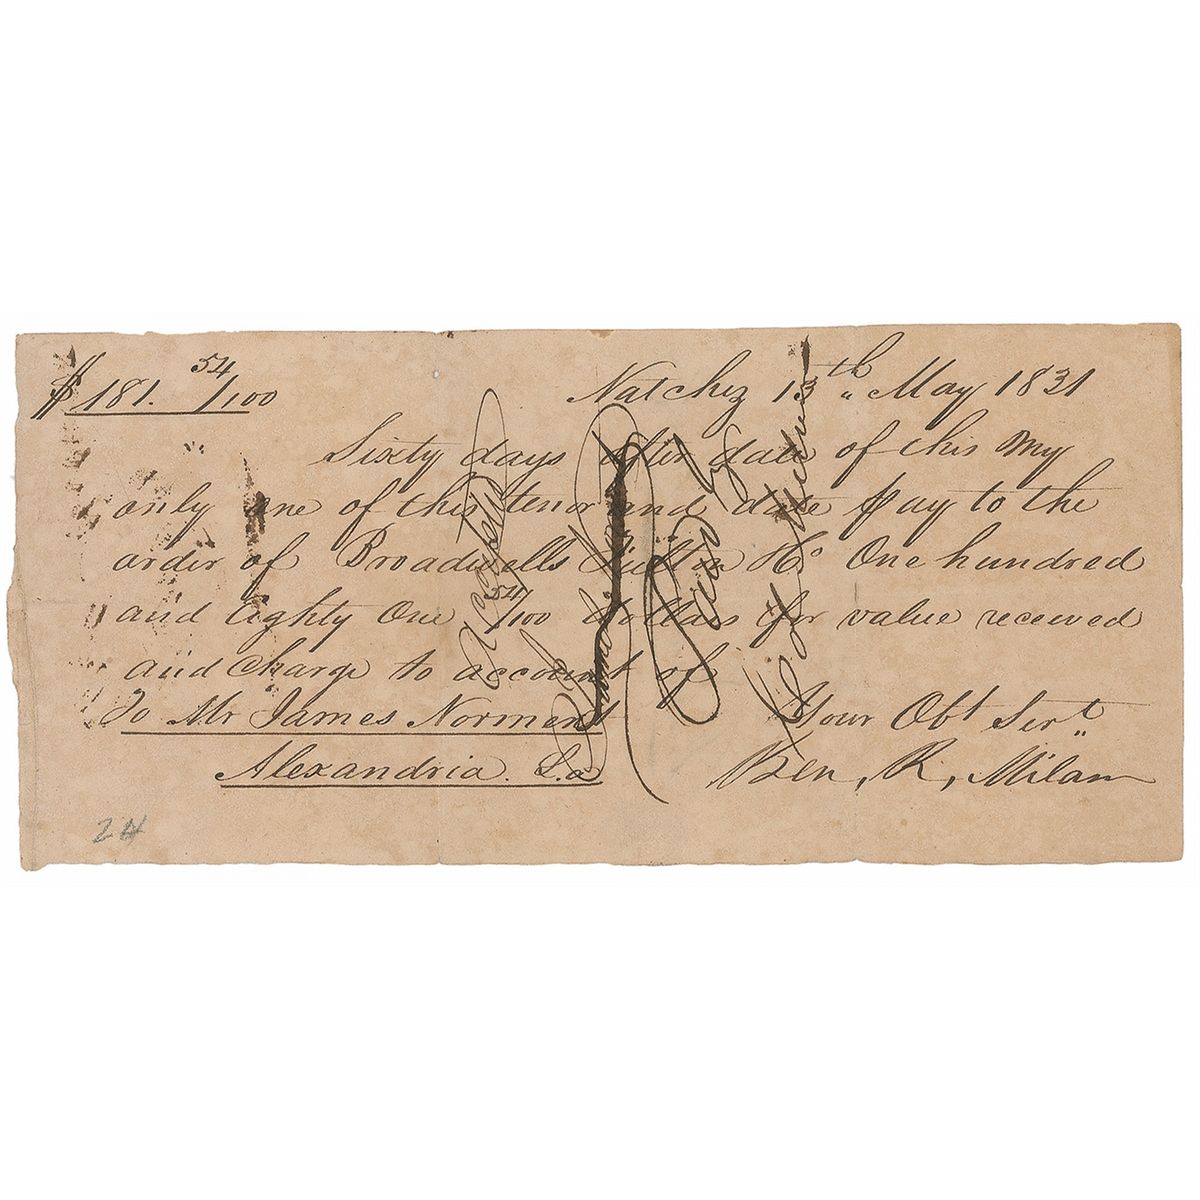 $ 181. 54/100
Natchez 13th May 1831
Sixty days after date of this my
only one of this tenor and date pay to the
order of Broadwells One hundred
and Eighty One 54/100 dollars for value received
and charge to account of
To Mr James Norment
Your Obt Servt
Alexandria. La
Ben, R, Milam
Accepted
24